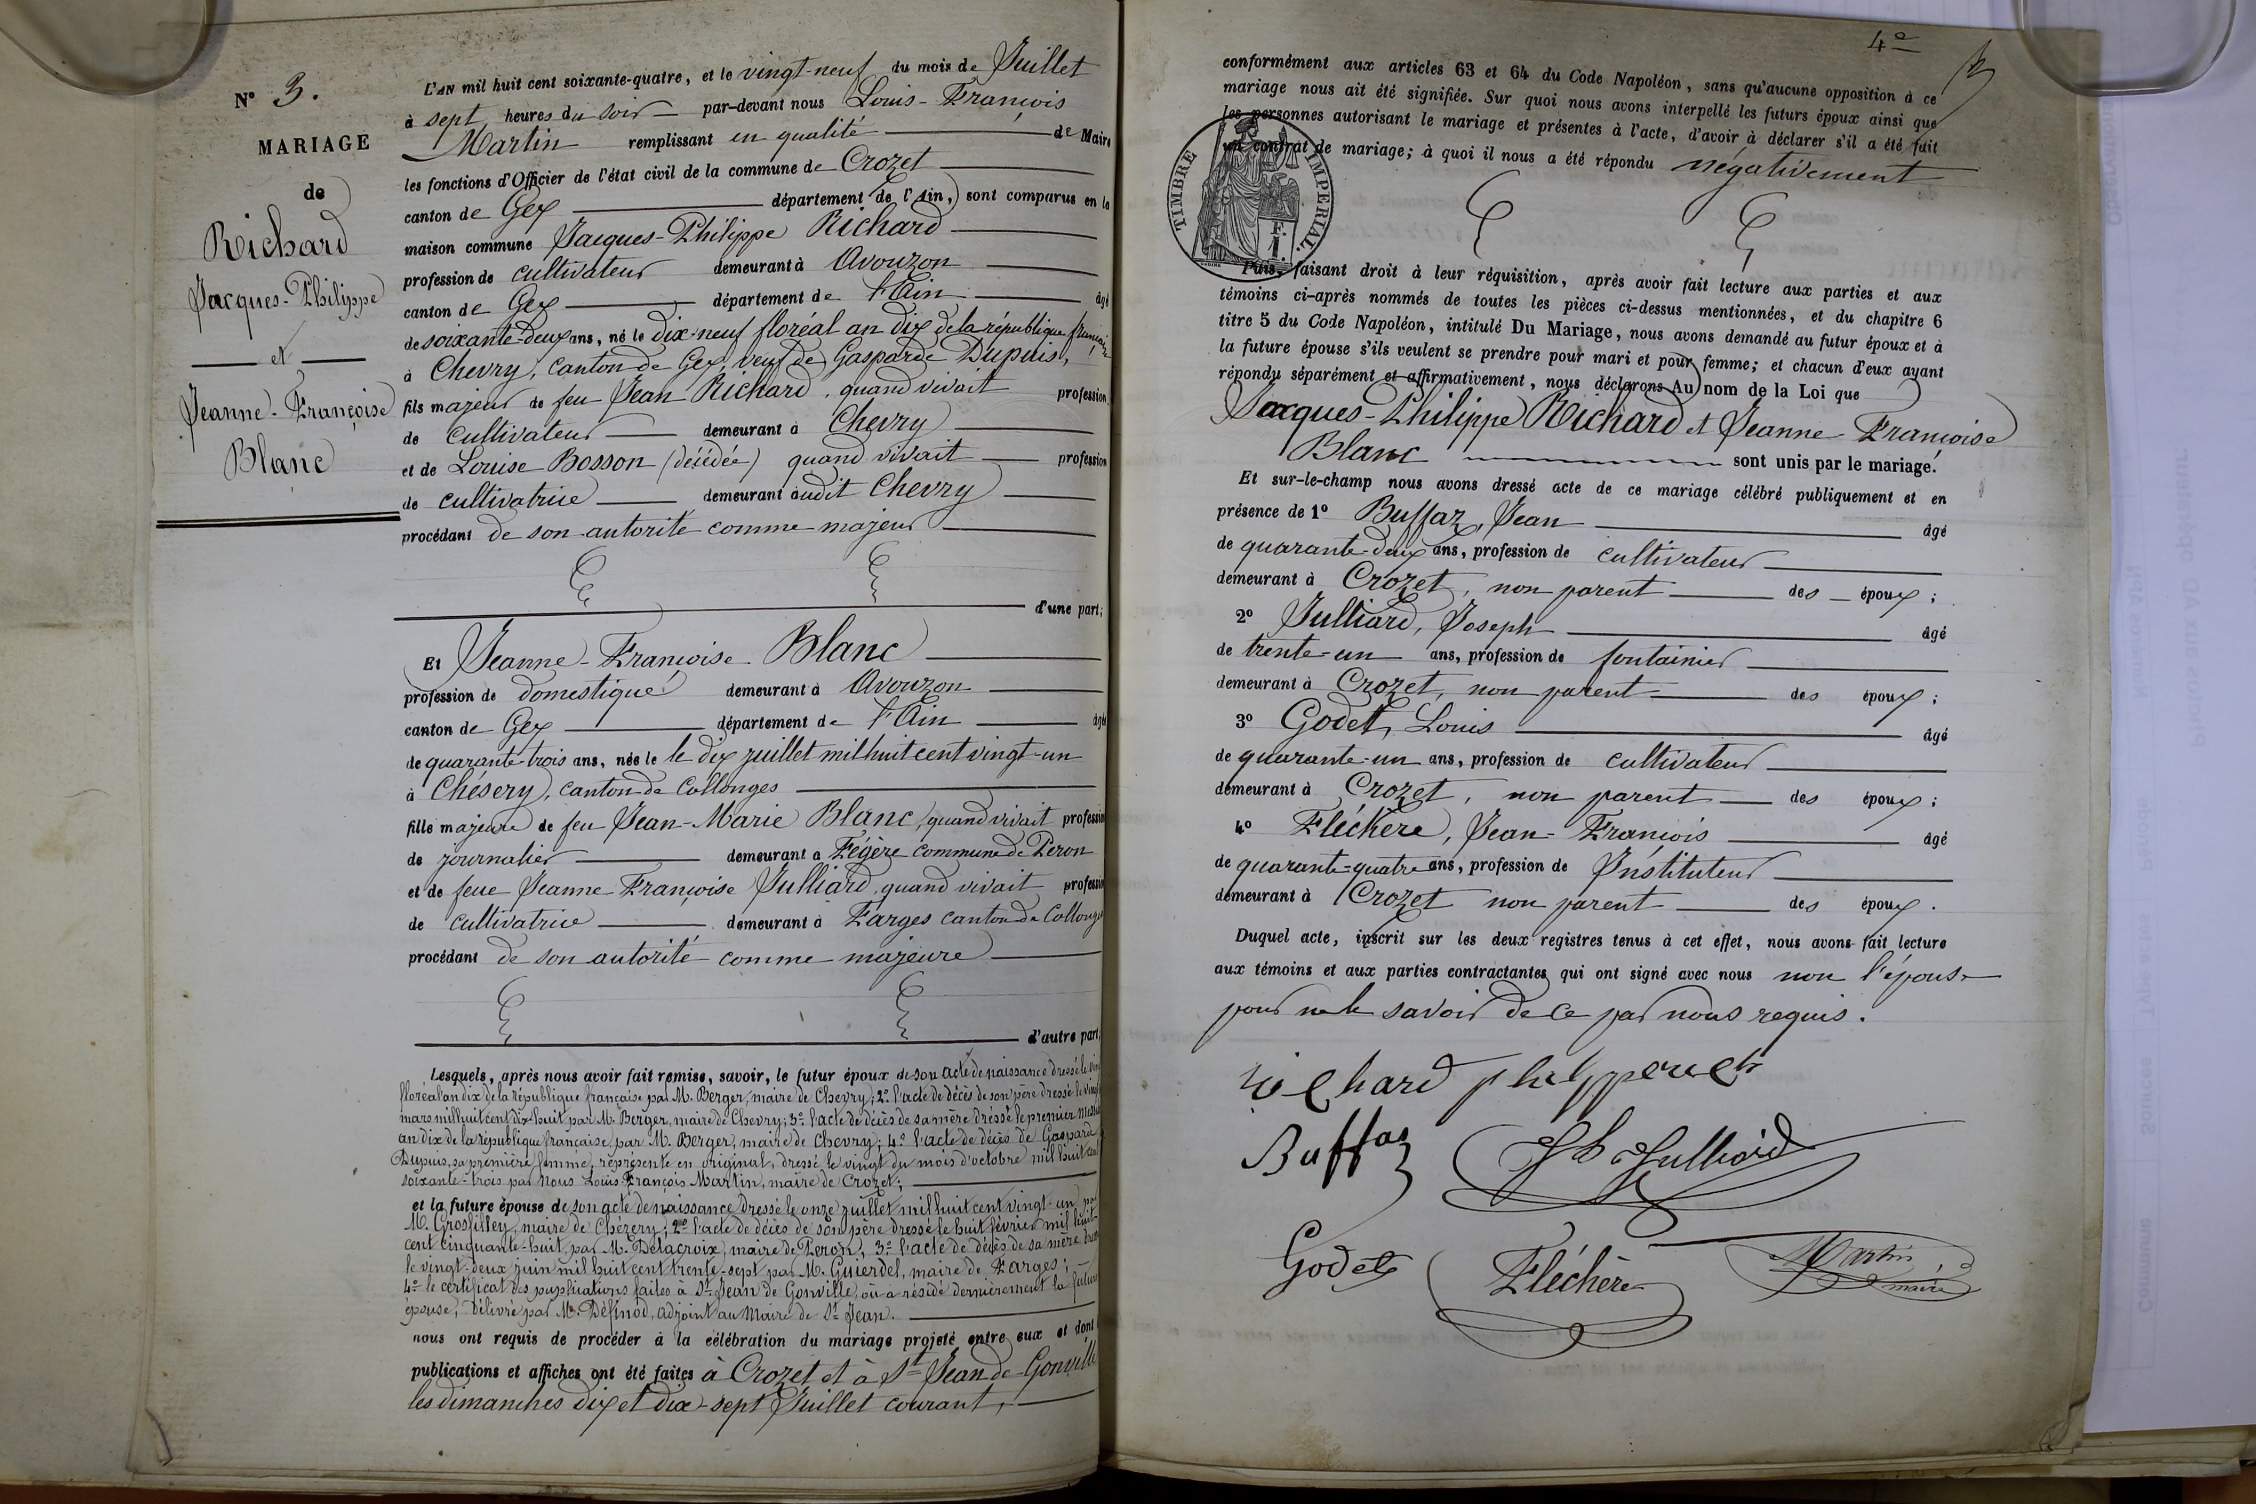 N° 3.
MARIAGE
de
Richard
Jacques-Philippe
et
Jeanne-Françoise
Blanc
L'AN mil huit cent soixante-quatre, et le vingt-neuf du mois de Juillet
à sept heures du soir par-devant nous Louis-François
Martin remplissant en qualité de Maire
les fonctions d'Officier de l'état civil de la commune de Crozet
canton de Gex département de l'Ain, sont comparus en la
maison commune Jacques-Philippe Richard
profession de cultivateur demeurant à Avouzon
canton de Gex département de l'Ain âgé
de soixante-deux ans, né le dix-neuf floréal an dix de la république française
à Chevry, canton de Gex, veuf de Gasparde Dupuis,
fils majeur de feu Jean Richard, quand vivait profession
de cultivateur demeurant à Chevry
et de Louise Bosson (décédée) quand vivait profession
de cultivatrice demeurant audit Chevry
procédant de son autorité comme majeur
d'une part;
Et Jeanne-Françoise Blanc
profession de domestique demeurant à Avouzon
canton de Gex département de l'Ain âgée
de quarante-trois ans, née le le dix juillet mil huit cent vingt-un
à Chésery, canton de Collonges
fille majeure de feu Jean-Marie Blanc, quand vivait profession
de journalier demeurant à Fégère commune de Peron
et de feue Jeanne-Françoise Julliard, quand vivait profession
de cultivatrice demeurant à Farges canton de Collonges
procédant de son autorité comme majeure
d'autre part,
Lesquels, après nous avoir fait remise, savoir, le futur époux de son acte de naissance dressé le vingt
floréal an dix de la république française par M. Berger, maire de Chevry; 2° l'acte de décès de son père dressé le vingt
mars mil huit cent dix-huit par M. Berger, maire de Chevry; 3° l'acte de décès de sa mère dressé le premier messidor
an dix de la république française, par M. Berger, maire de Chevry; 4° l'acte de décès de Gasparde
Dupuis, sa première femme, représenté en original, dressé le vingt du mois d'octobre mil huit cent
soixante-trois par nous Louis-François Martin, maire de Crozet;
et la future épouse de son acte de naissance dressé le onze juillet mil huit cent vingt-un par
M. Grosfilley, maire de Chézery; 2° l'acte de décès de son père dressé le huit février mil huit
cent cinquante-huit par M. Delacroix, maire de Peron; 3° l'acte de décès de sa mère dressé
le vingt-deux juin mil huit cent trente-sept par M. Guierdet, maire de Farges;
4° le certificat des publications faites à St Jean de Gonville, où a résidé dernièrement la future
épouse, délivré par M. Définod, adjoint au Maire de St Jean.
nous ont requis de procéder à la célébration du mariage projeté entre eux et dont
publications et affiches ont été faites à Crozet et à St Jean de Gonville
les dimanches dix et dix-sept Juillet courant,
4e
conformément aux articles 63 et 64 du Code Napoléon, sans qu'aucune opposition à ce
mariage nous ait été signifiée. Sur quoi nous avons interpellé les futurs époux ainsi que
les personnes autorisant le mariage et présentes à l'acte, d'avoir à déclarer s'il a été fait
un contrat de mariage; à quoi il nous a été répondu négativement
TIMBRE IMPERIAL.
F. 1.
Puis, faisant droit à leur réquisition, après avoir fait lecture aux parties et aux
témoins ci-après nommés de toutes les pièces ci-dessus mentionnées, et du chapitre 6
titre 5 du Code Napoléon, intitulé Du Mariage, nous avons demandé au futur époux et à
la future épouse s'ils veulent se prendre pour mari et pour femme; et chacun d'eux ayant
répondu séparément et affirmativement, nous déclarons Au nom de la Loi que
Jacques-Philippe Richard et Jeanne-Françoise
Blanc sont unis par le mariage.
Et sur-le-champ nous avons dressé acte de ce mariage célébré publiquement et en
présence de 1° Buffaz, Jean âgé
de quarante-deux ans, profession de cultivateur
demeurant à Crozet, non parent des époux;
2° Julliard, Joseph âgé
de trente-un ans, profession de fontainier
demeurant à Crozet, non parent des époux;
3° Godet, Louis âgé
de quarante-un ans, profession de cultivateur
demeurant à Crozet, non parent des époux;
4° Fléchère, Jean-François âgé
de quarante-quatre ans, profession de Instituteur
demeurant à Crozet non parent des époux.
Duquel acte, inscrit sur les deux registres tenus à cet effet, nous avons fait lecture
aux témoins et aux parties contractantes qui ont signé avec nous non l'épouse
pour ne le savoir de ce par nous requis.
Richard
Buffaz Jh Julliard
Godet Fléchère Martin
maire